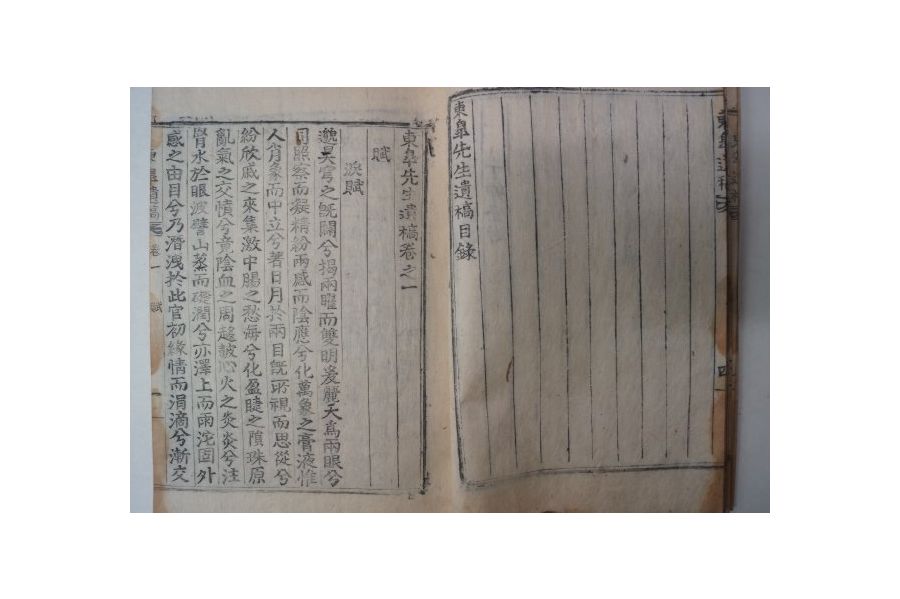 東皐先生遺稿目錄
東皐先生遺稿卷之一
賦
淚賦
邈昊穹之旣闢兮揭兩曜而雙明爰麗天爲兩眼兮
同照察而凝精紛兩感而陰應兮化萬象之膏液惟
人肖象而中立兮著日月於兩目旣所視而思從兮
紛欣戚之來集激中腸之愁海兮化盈睫之隕珠原
亂氣之交憤兮竟陰血之周趨皷心火之炎炎兮注
腎水於眼波譬山蒸而礎潤兮亦澤上而雨沱固外
感之由目兮乃潛洩於此官初緣情而涓滴兮漸交
卷一
賦
一